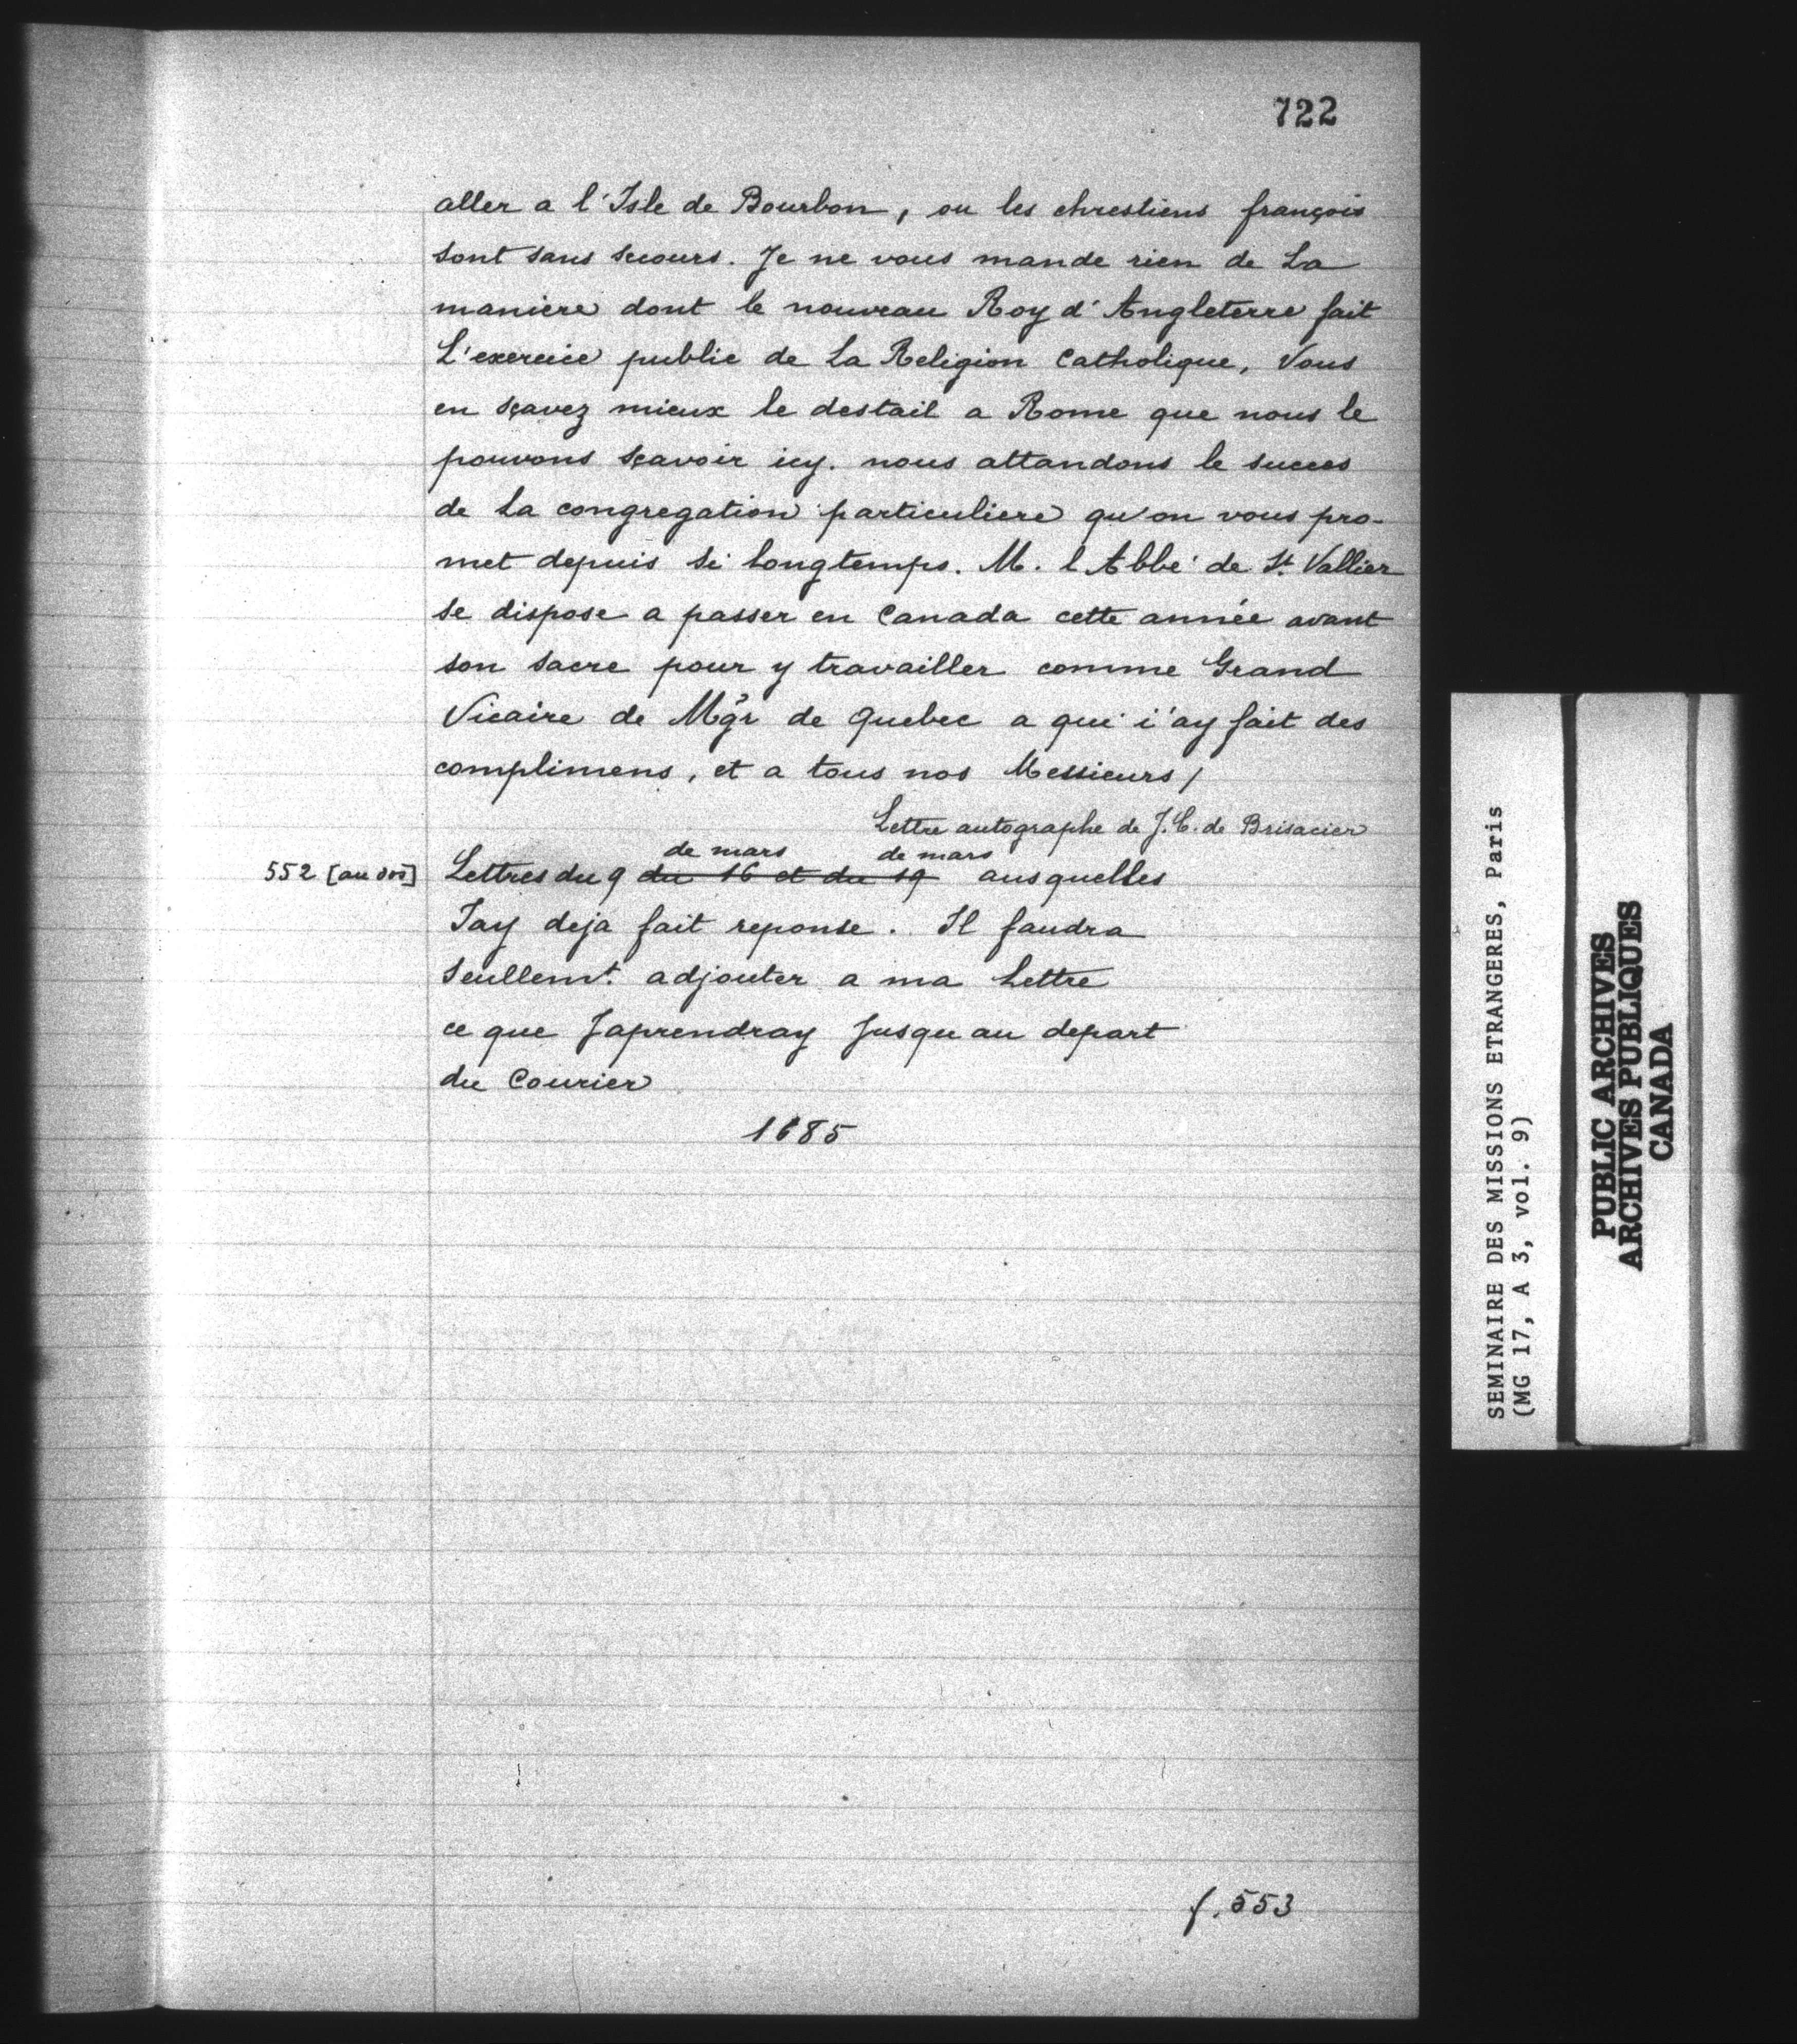 722
aller a l'Isle de Bourbon, ou les chrestiens françois
sont sans secours. Je ne vous mande rien de La
maniere dont le nouveau Roy d'Angleterre fait
L'exercice public de La Religion Catholique, Vous
en sçavez mieux le destail a Rome que nous le
pouvons sçavoir icy. nous attandons le succes
de La congregation particuliere qu'on vous pro-
met depuis si longtemps. M. l'Abbé de St. Vallier
se dispose a passer en Canada cette année avant
son sacre pour y travailler comme Grand
Vicaire de Mgr de Quebec a qui i'ay fait des
complimens, et a tous nos Messieurs/
Lettre autographe de J.C. de Brisacier
de mars de mars
552 [au dos] Lettres du 9 du 16 et du 19 ausquelles
Jay deja fait reponse. Il faudra
seullemt. adjouter a ma Lettre
ce que Japrendray Jusqu au depart
du Courier
1685
f. 553
SEMINAIRE DES MISSIONS ETRANGERES, Paris
(MG 17, A 3, vol. 9)
PUBLIC ARCHIVES
ARCHIVES PUBLIQUES
CANADA